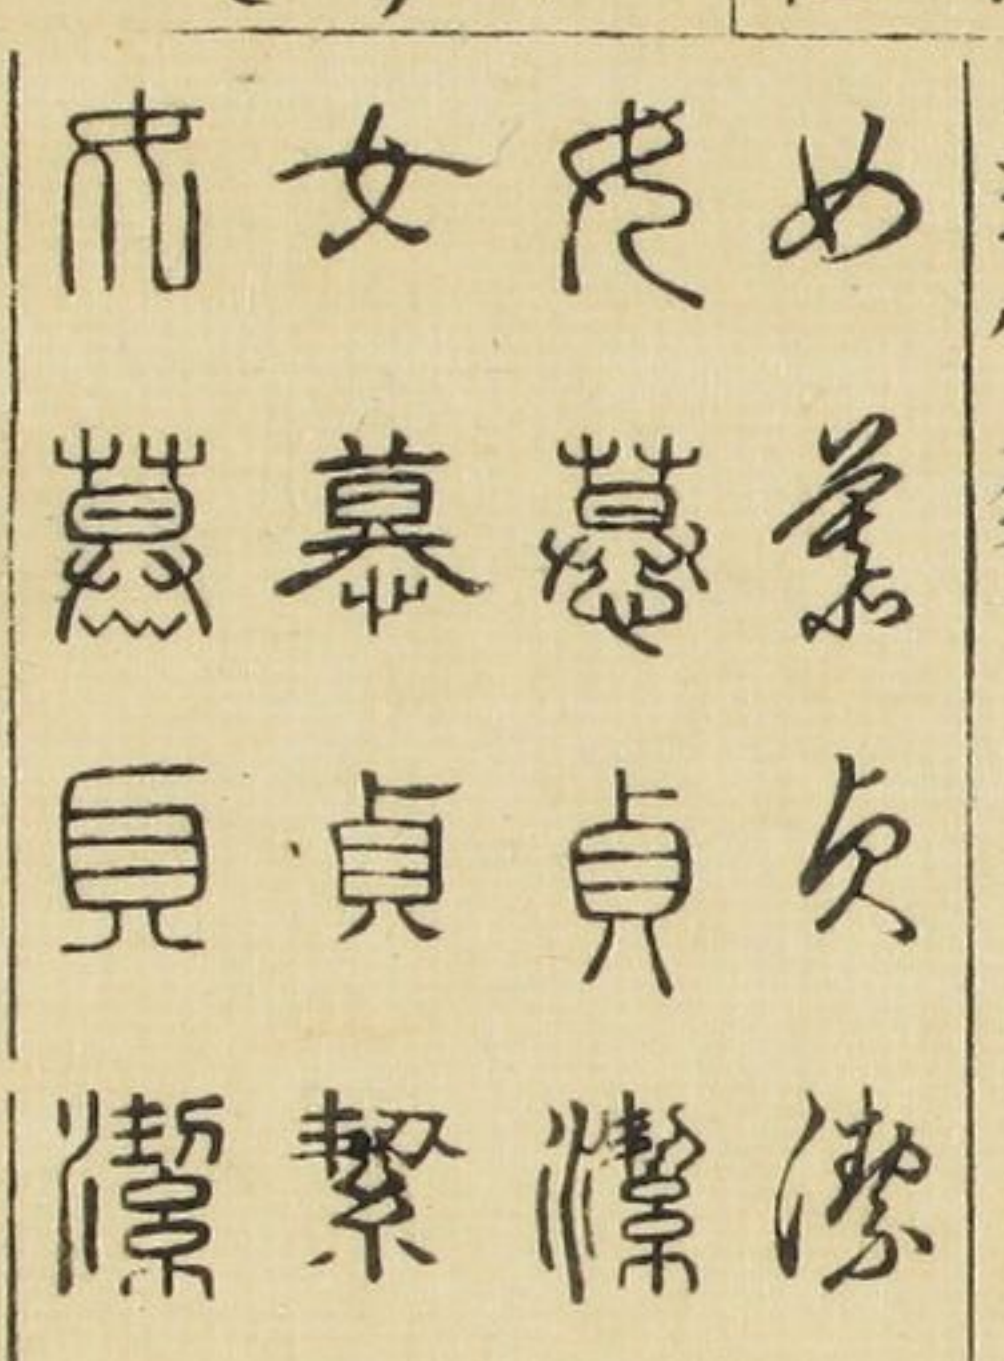 女慕貞潔
女慕貞潔
女慕貞絜
女慕貞潔